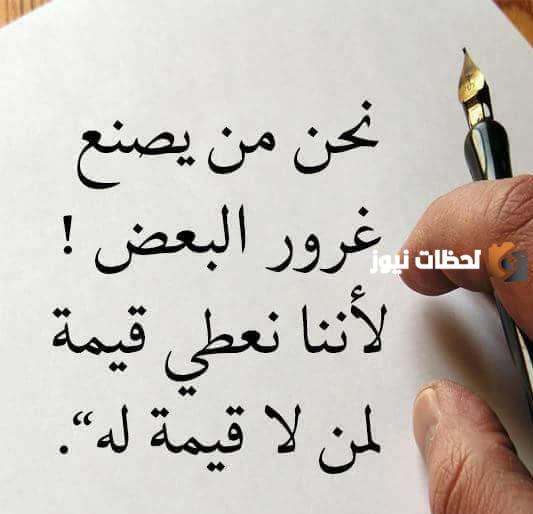 نحن من يصنع
غرور البعض !
لأننا نعطي قيمة
لمن لا قيمة له“.
لحظات نيوز